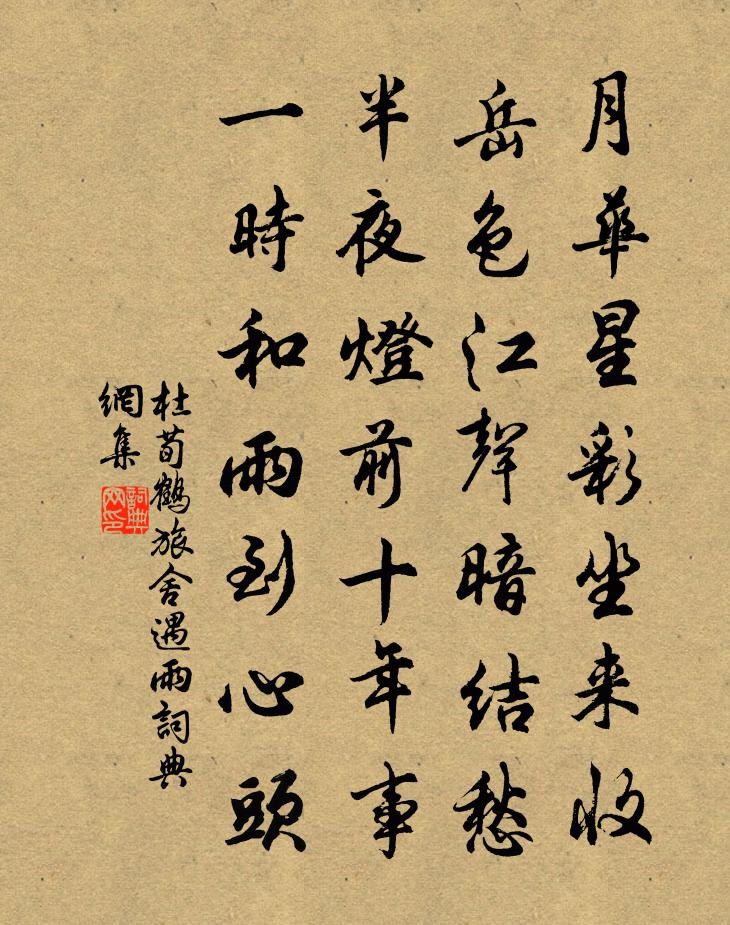 月華星彩坐来收
岳色江聲暗結愁
半夜燈前十年事
一時和雨到心頭
杜荀鶴旅舍遇雨詞典
網集
詞典
网印